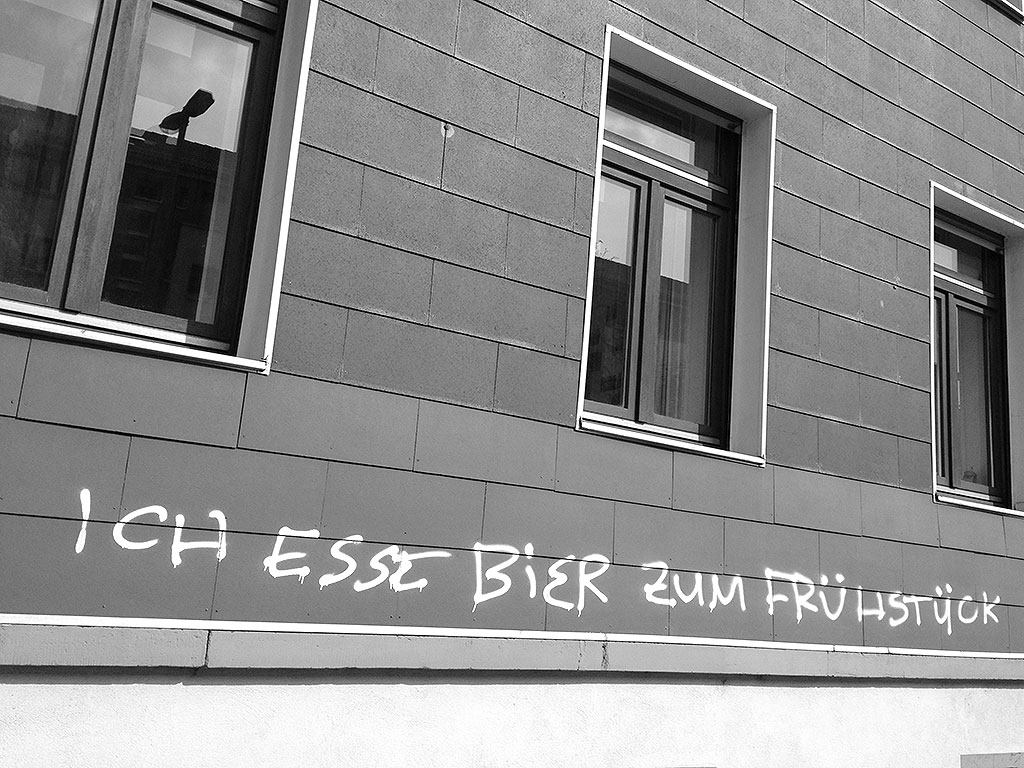 ICH ESSE BiER ZUM FRÜHSTÜCK